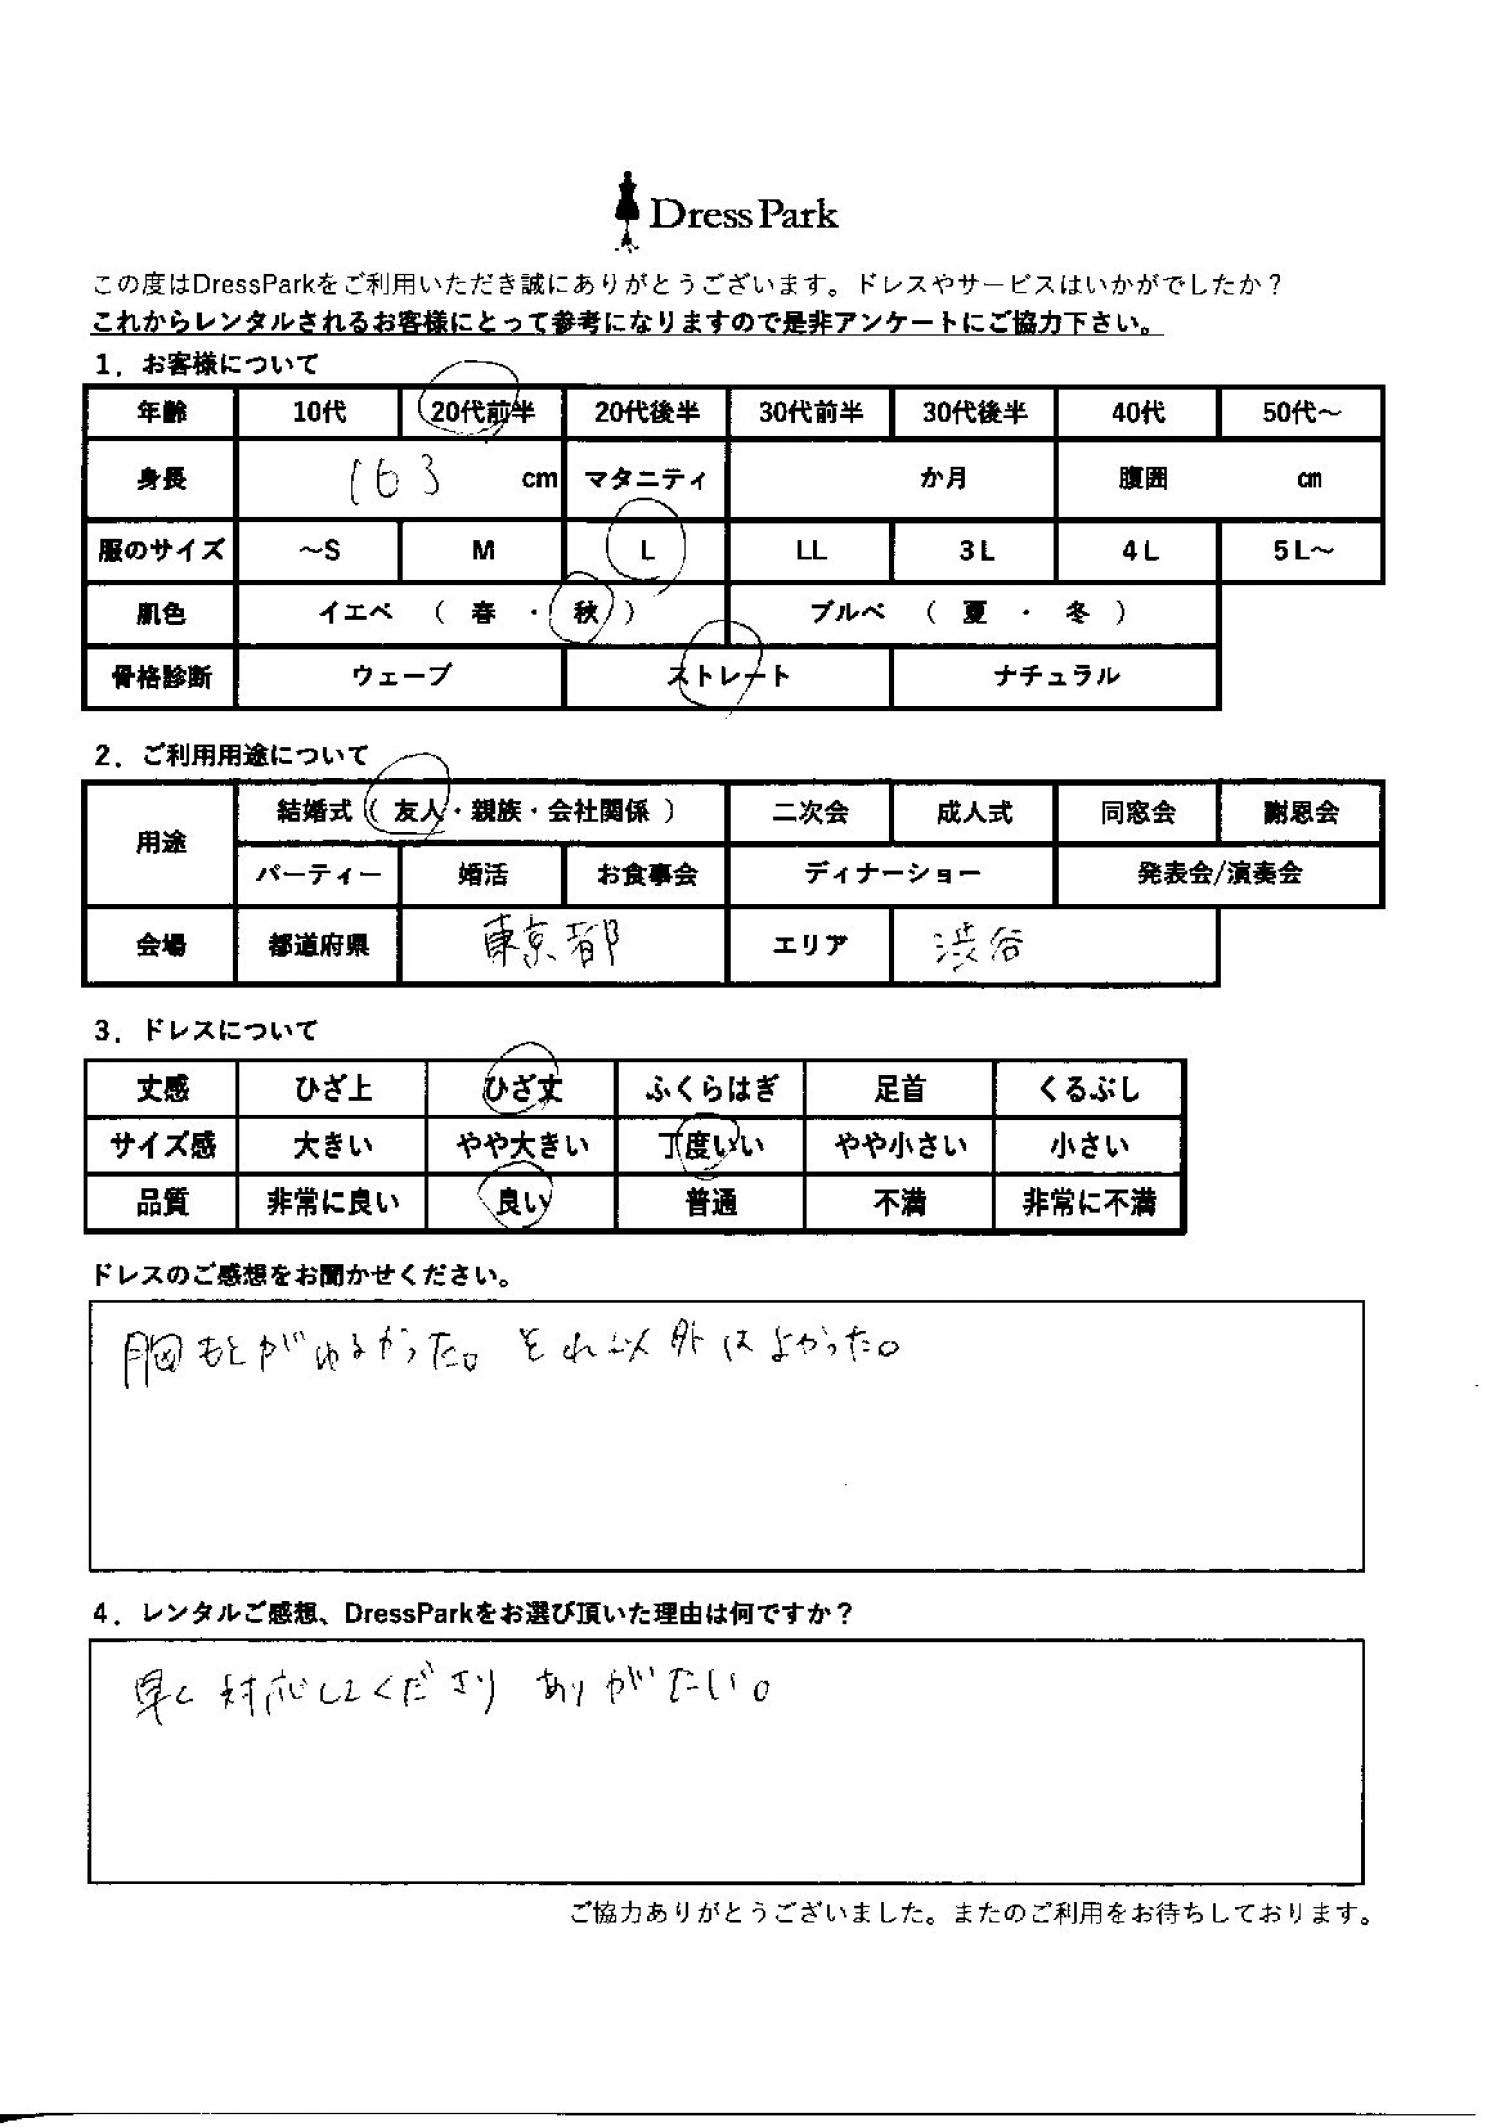 Dress Park
この度はDressParkをご利用いただき誠にありがとうございます。ドレスやサービスはいかがでしたか？
これからレンタルされるお客様にとって参考になりますので是非アンケートにご協力下さい。
1．お客様について
年齢 10代 20代前半 20代後半 30代前半 30代後半 40代 50代～
身長 163 cm マタニティ か月 腹囲 ㎝
服のサイズ ～S M L LL 3L 4L 5L～
肌色 イエベ （ 春 ・ 秋 ） ブルベ （ 夏 ・ 冬 ）
骨格診断 ウェーブ ストレート ナチュラル
2．ご利用用途について
用途 結婚式（ 友人・親族・会社関係 ） 二次会 成人式 同窓会 謝恩会
パーティー 婚活 お食事会 ディナーショー 発表会/演奏会
会場 都道府県 東京都 エリア 渋谷
3．ドレスについて
丈感 ひざ上 ひざ丈 ふくらはぎ 足首 くるぶし
サイズ感 大きい やや大きい 丁度いい やや小さい 小さい
品質 非常に良い 良い 普通 不満 非常に不満
ドレスのご感想をお聞かせください。
胸もとがゆるかった。それ以外はよかった。
4．レンタルご感想、DressParkをお選び頂いた理由は何ですか？
早く対応してくださりありがたい。
ご協力ありがとうございました。またのご利用をお待ちしております。